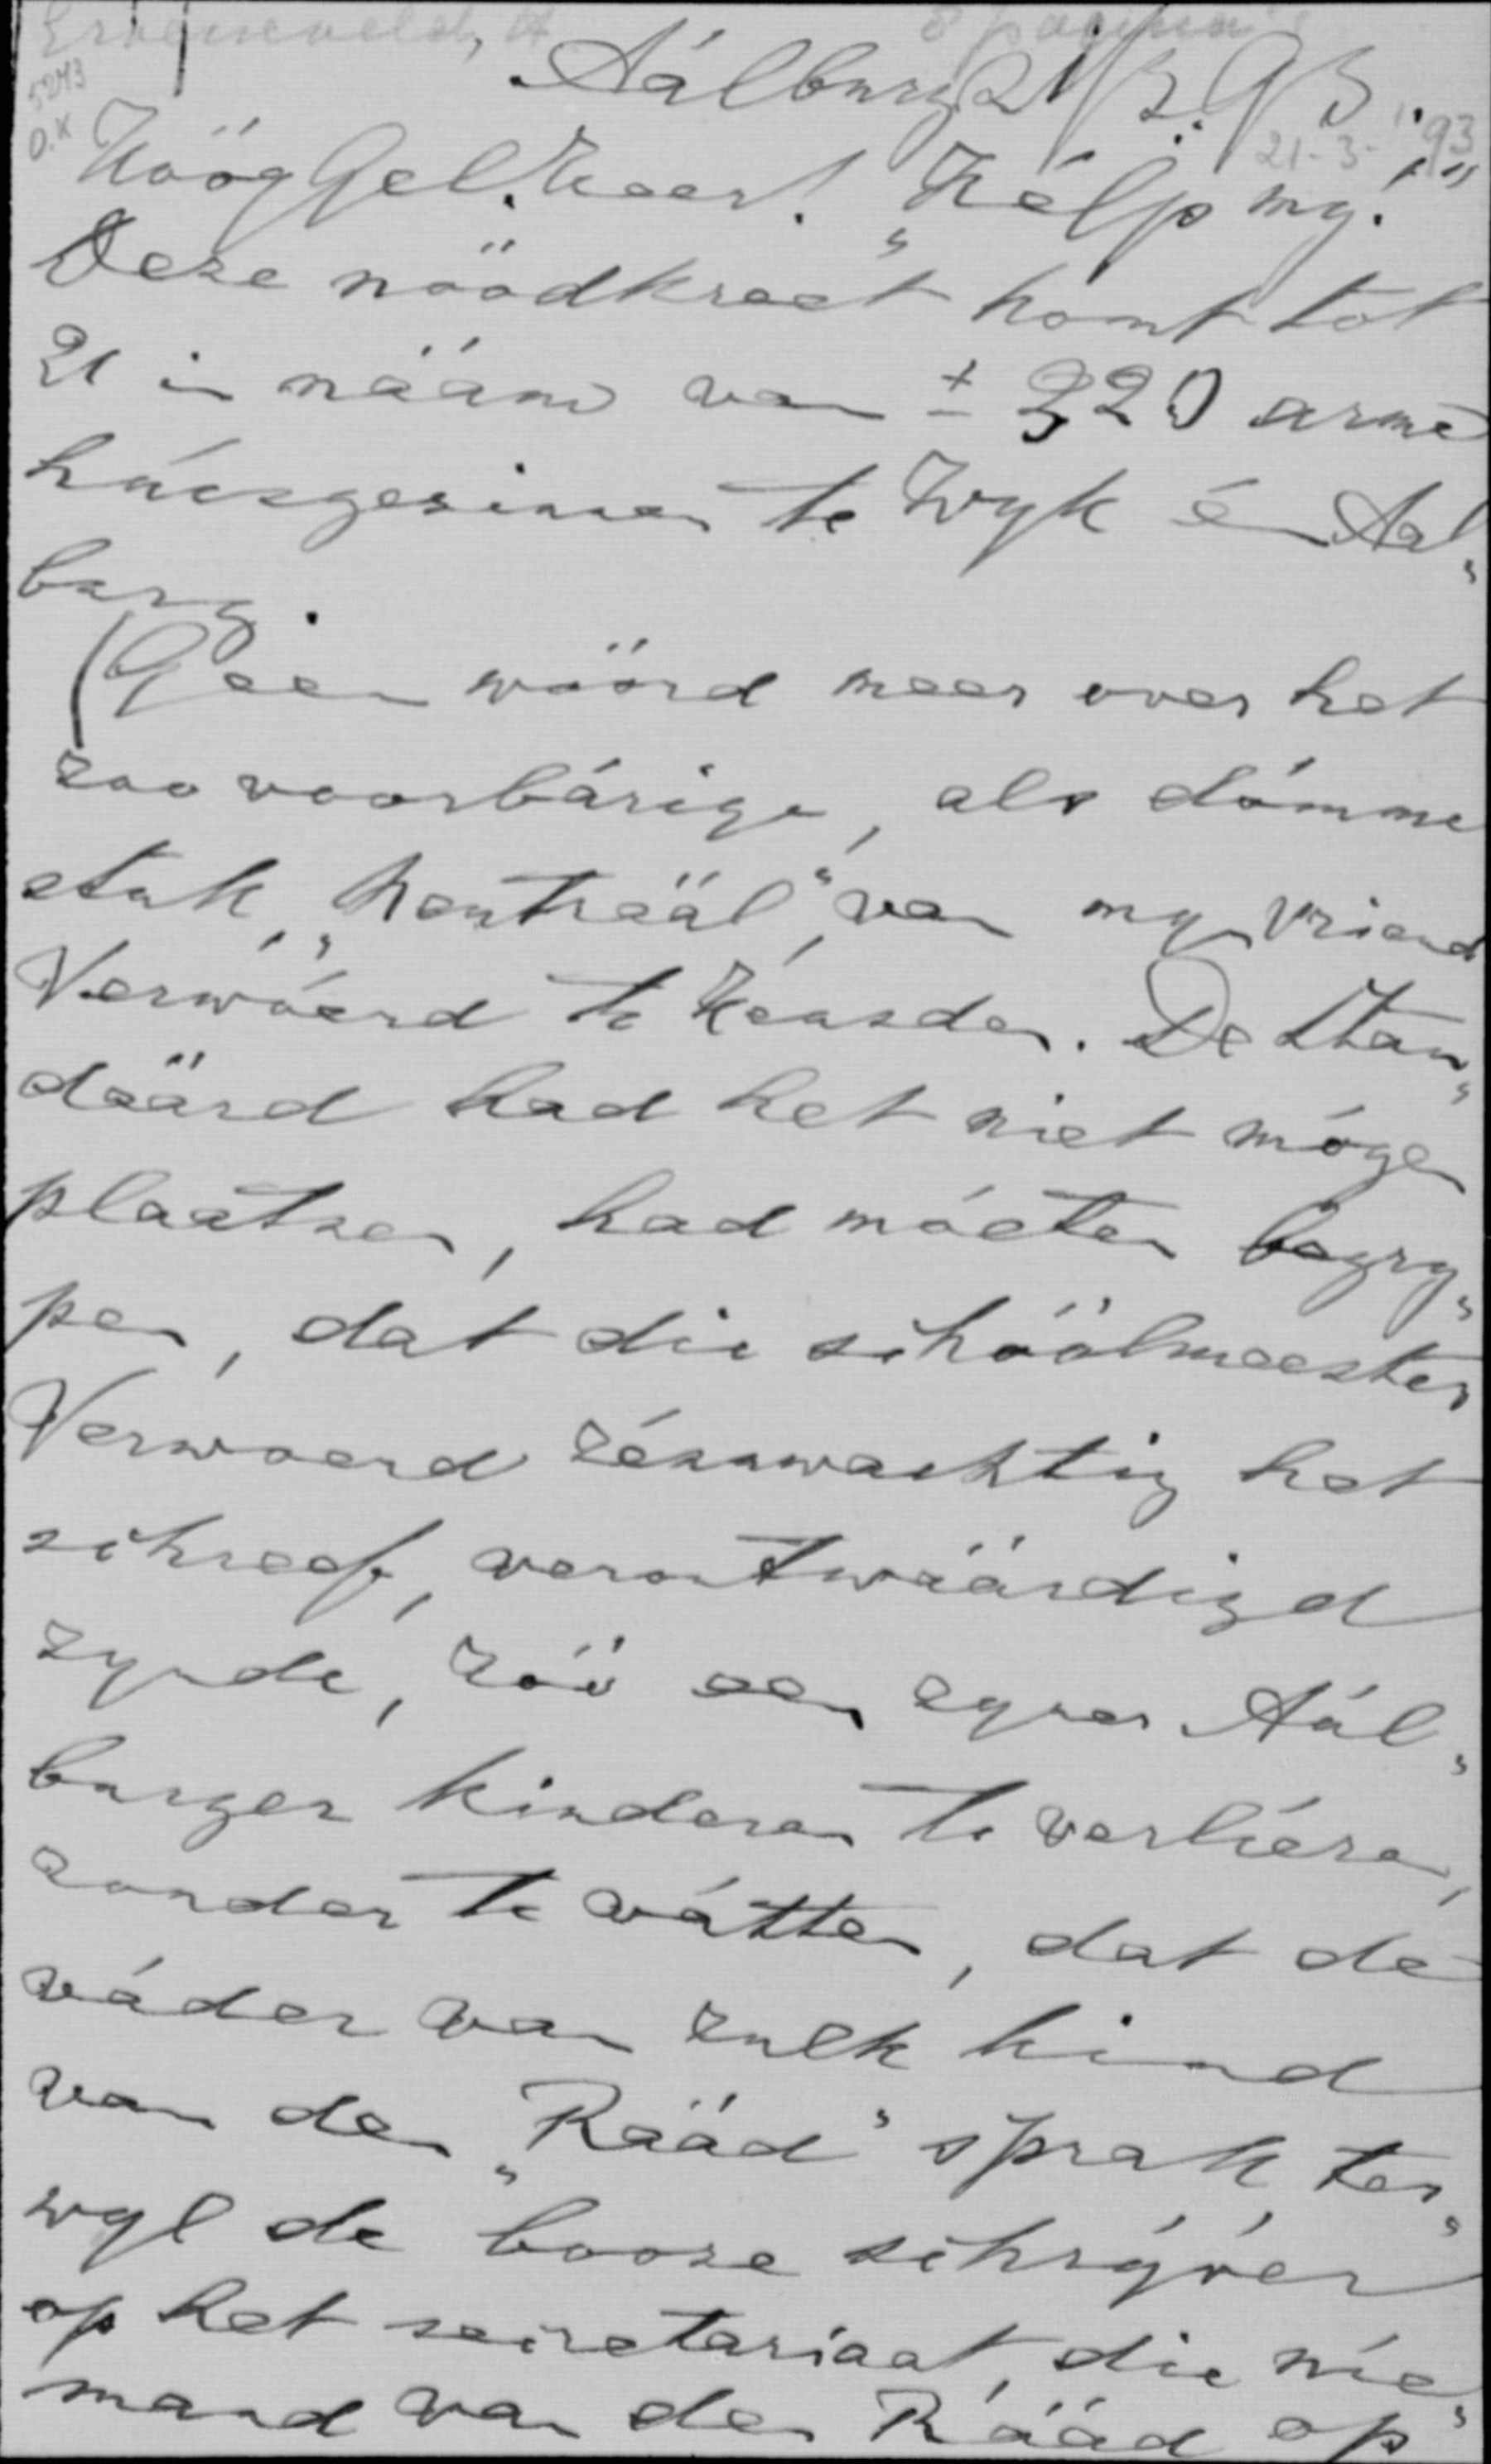 8 pagina's
5273
O.K
Aálburg 21/3. 93.
21-3-'93
Hóóg Gel. Heer! „Hélp my!"
Deze nóódkreet komt tot
U in náám van ± 320 arme
húisgezinnen te Wyk én Aal„
burg.
(Geen wóórd meer over het
zoo voorbárige, als dómme
stuk, „kontráál", van myn vriend
Verwóerd te Heusden. De Stan„
dáárd had het niet mógen
plaatsen, had móeten begry„
pen, dat die schóólmeester
Verwoerd zénuwachtig het
schreef, verontwáárdigd
zynde, zóó een zyner Aál„
burger kinderen te verliézen,
zonder te vátten, dat de
váder van zulk kind
van den „Ráád" sprak, ter„
wyl de booze schrýver
op het secretariaat, die nie„
mand van den Ráád op„